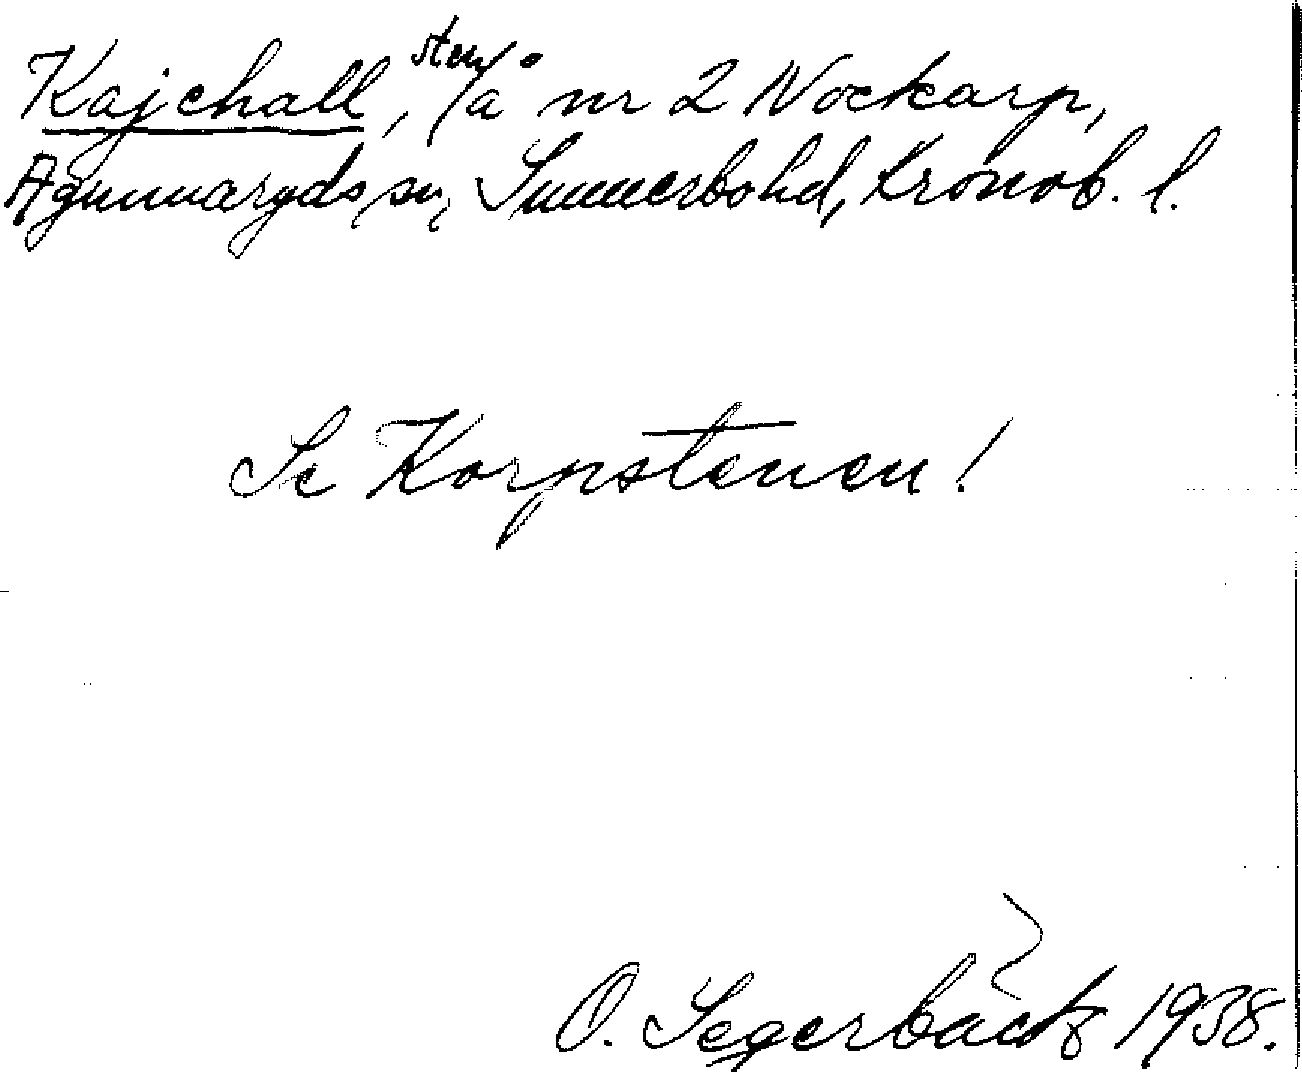 Kajehall, sten, å nr 2 Nockarp,
Agunnaryds sn, Sunnerbo hd, Kronob. l.
Se Korpstenen!
O. Segerbäck 1938.